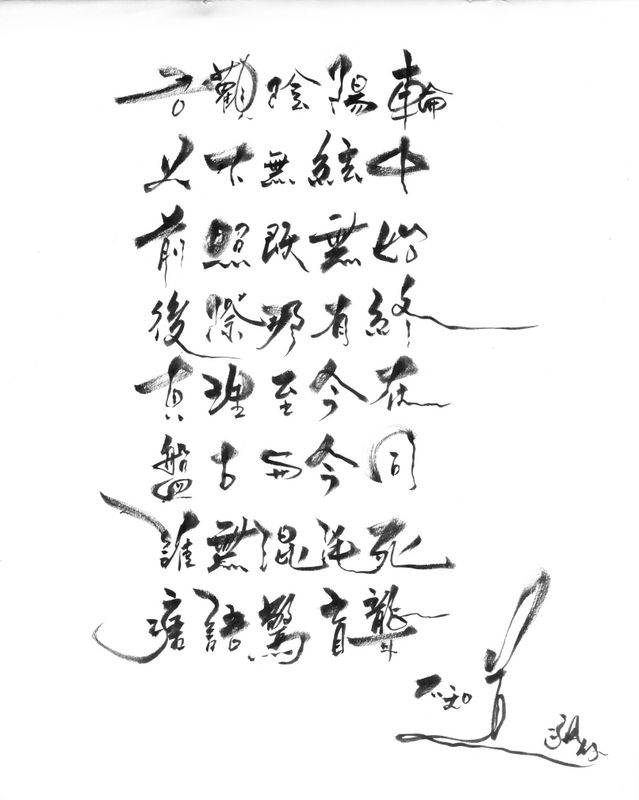 觀陰陽輪
無絃中
前照既無始
後際那有終
真理至今在
盤古與今同
誰無混沌死
語驚盲聾
不知道